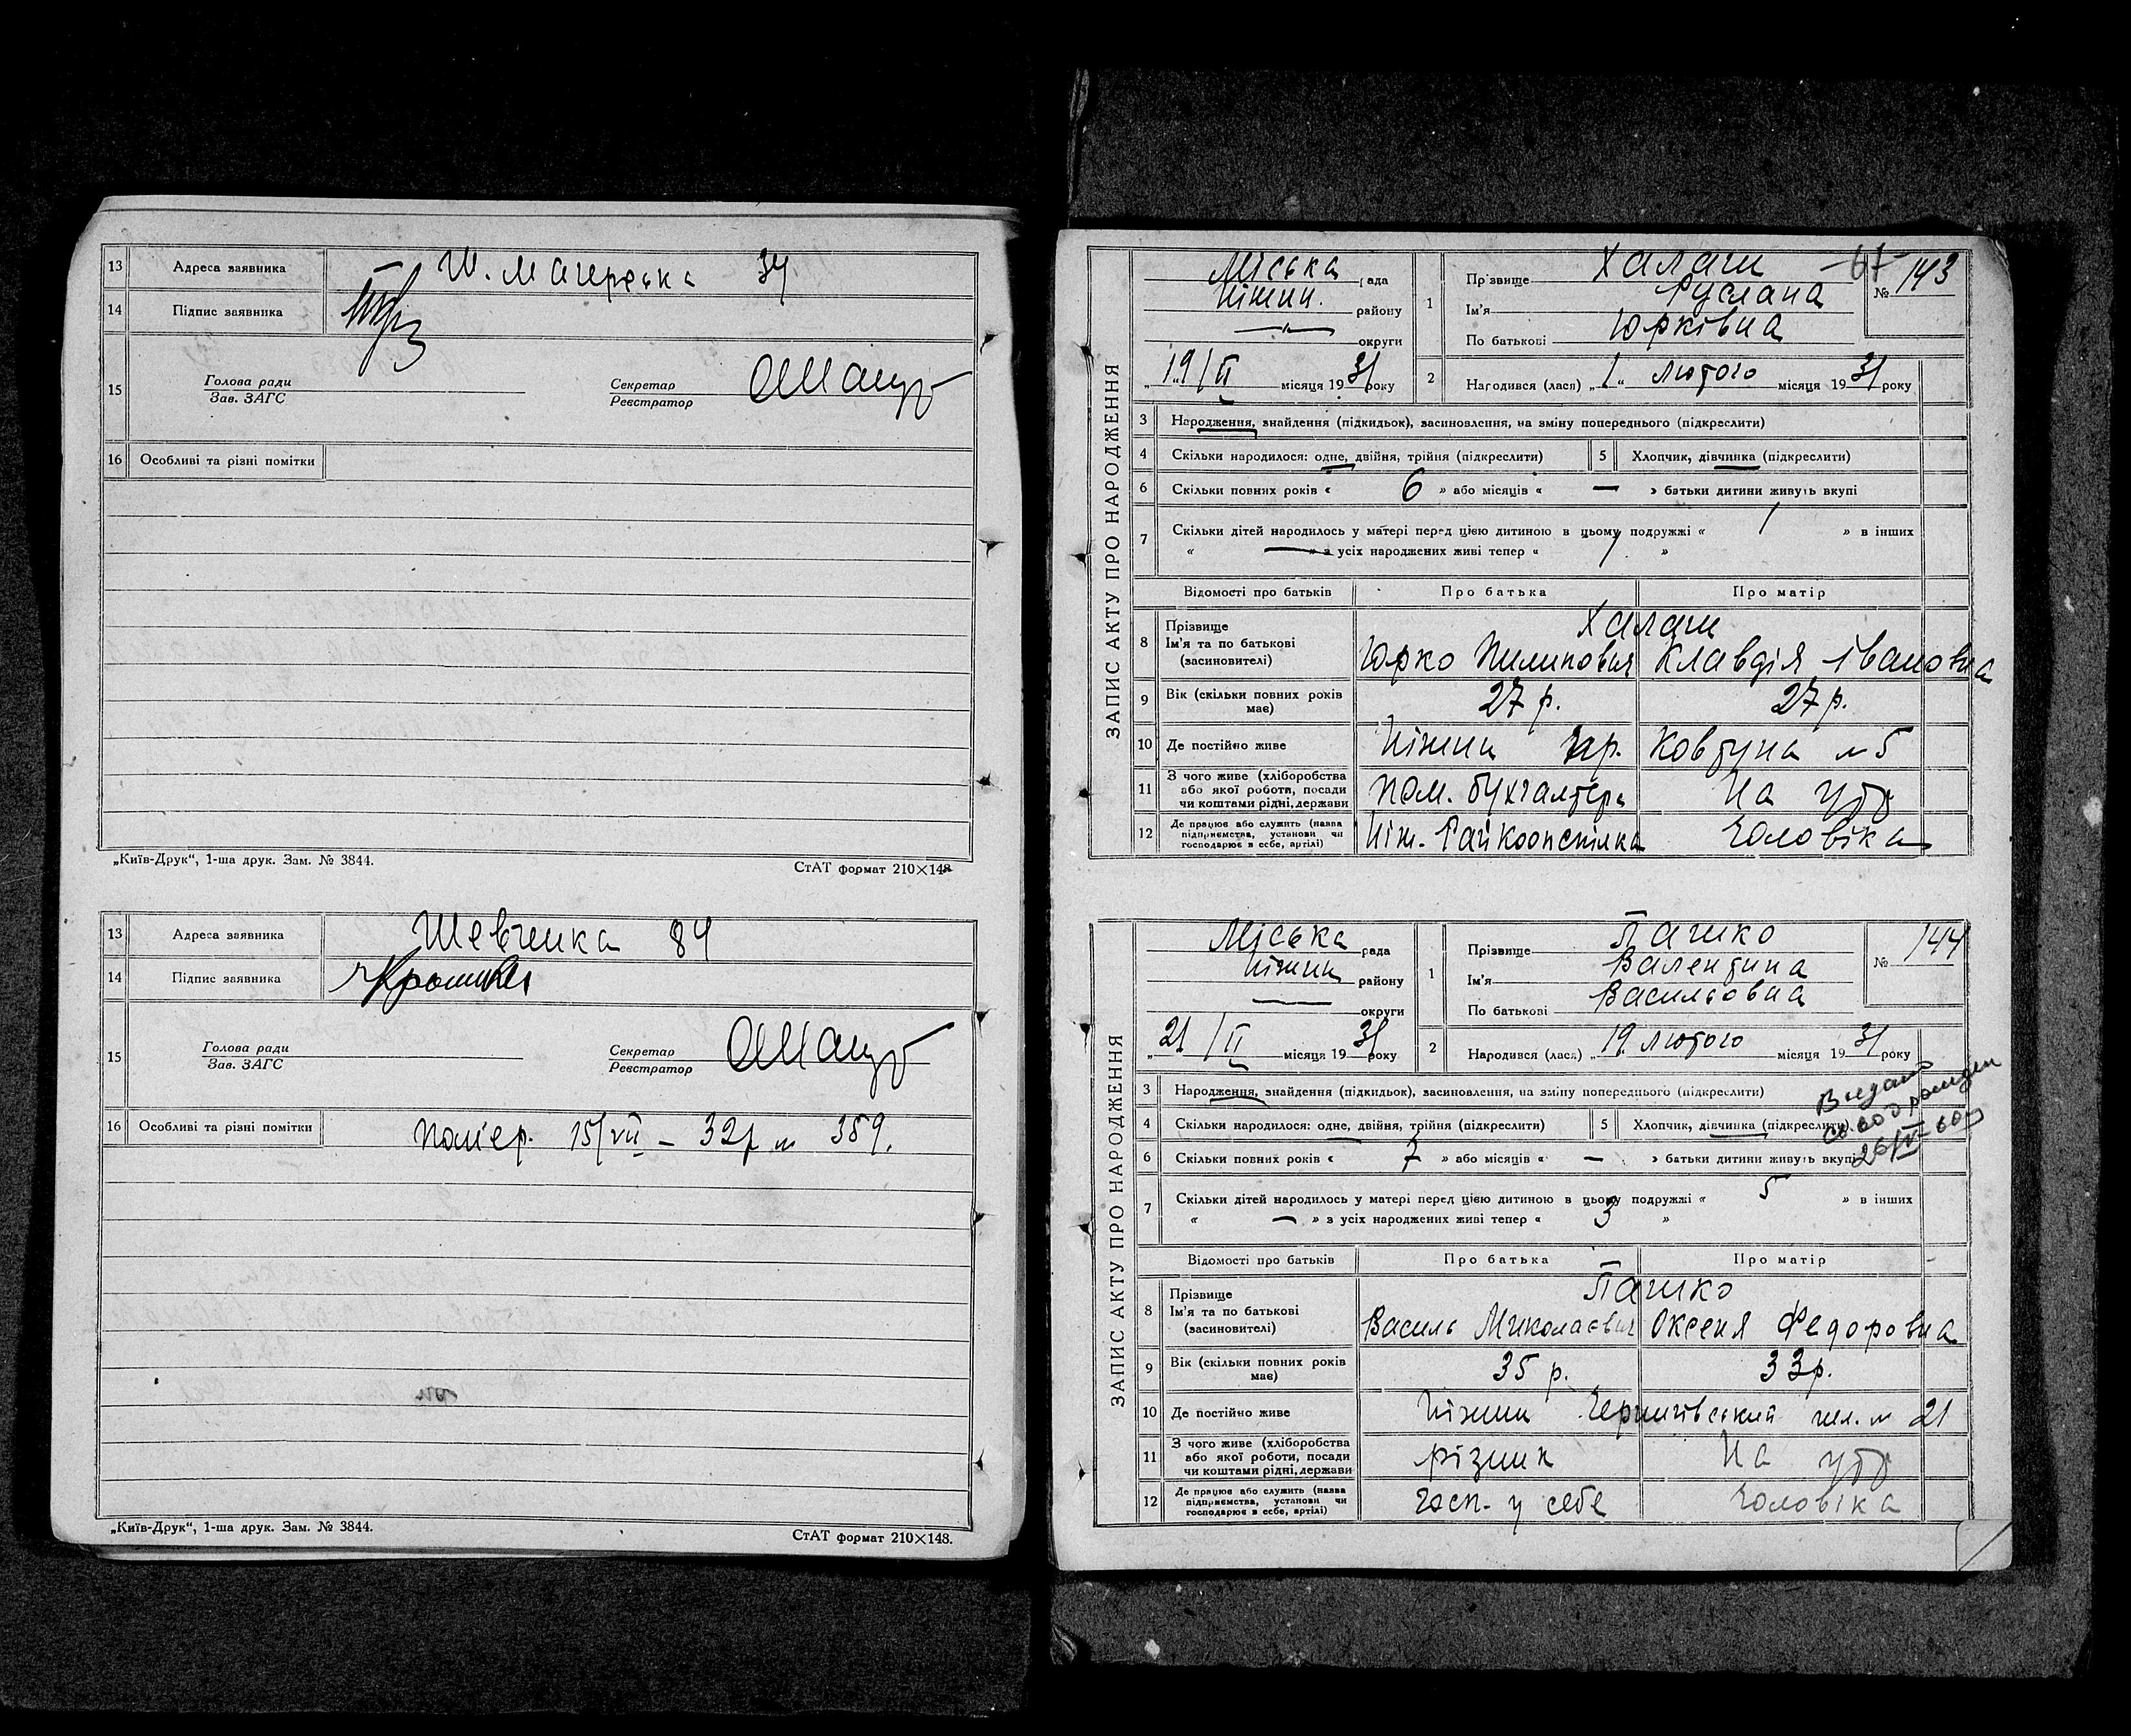 13 Адреса заявника Ш. Магерська 34
14 Підпис заявника
15 Голова ради
Зав. ЗАГС
Секретар
Реєстратор
16 Особливі та різні помітки
„Київ-Друк“, 1-ша друк. Зам. № 3844.
СтАТ формат 210×148
13 Адреса заявника Шевченка 84
14 Підпис заявника
15 Голова ради
Зав. ЗАГС
Секретар
Реєстратор
16 Особливі та різні помітки помер. 15/VII – 32 р № 359.
„Київ-Друк“, 1-ша друк. Зам. № 3844.
СтАТ формат 210×148.
ЗАПИС АКТУ ПРО НАРОДЖЕННЯ
Міська рада
Ніжин. району
— округи
„19/II місяця 1931 року
1 Прізвище Халаш
Ім'я Руслана
По батькові Юрківна
67
№ 143
2 Народився (лася) „1“ лютого місяця 1931 року
3 Народження, знайдення (підкидьок), засиновлення, на зміну попереднього (підкреслити)
4 Скільки народилося: одне, двійня, трійня (підкреслити) 5 Хлопчик, дівчинка (підкреслити)
6 Скільки повних років « 6 » або місяців « — » батьки дитини живуть вкупі
7 Скільки дітей народилось у матері перед цією дитиною в цьому подружжі « 1 » в інших
« — » з усіх народжених живі тепер « 1 »
Відомості про батьків Про батька Про матір
8 Прізвище Халаш
Ім'я та по батькові Юрко Пилипович Клавдія Івановна
(засиновителі)
9 Вік (скільки повних років має) 27 р. 27 р.
10 Де постійно живе Ніжин Ковтуна № 5
11 З чого живе (хліборобства
або якої роботи, посади
чи коштами рідні, держави пом. бухгалтера На утр
12 Де працює або служить (назва
підприємства, установи чи
господарює в себе, артілі) Ніж. Райкоопспілка чоловіка
ЗАПИС АКТУ ПРО НАРОДЖЕННЯ
Міська рада
Ніжин району
— округи
„21/II місяця 1931 року
1 Прізвище Пашко
Ім'я Валентина
По батькові Васильовна
№ 144
2 Народився (лася) „19“ лютого місяця 1931 року
3 Народження, знайдення (підкидьок), засиновлення, на зміну попереднього (підкреслити)
Видано
св. о рожден
26/V–60 г
4 Скільки народилося: одне, двійня, трійня (підкреслити) 5 Хлопчик, дівчинка (підкреслити)
6 Скільки повних років « 7 » або місяців « — » батьки дитини живуть вкупі
7 Скільки дітей народилось у матері перед цією дитиною в цьому подружжі « 5 » в інших
« — » з усіх народжених живі тепер « 3 »
Відомості про батьків Про батька Про матір
8 Прізвище Пашко
Ім'я та по батькові Василь Миколаєвич Оксеня Федоровна
(засиновителі)
9 Вік (скільки повних років має) 35 р. 33 р.
10 Де постійно живе Ніжин Чернигівський шл. № 21
11 З чого живе (хліборобства
або якої роботи, посади
чи коштами рідні, держави різник На утр
12 Де працює або служить (назва
підприємства, установи чи
господарює в себе, артілі) Госп. у себе чоловіка